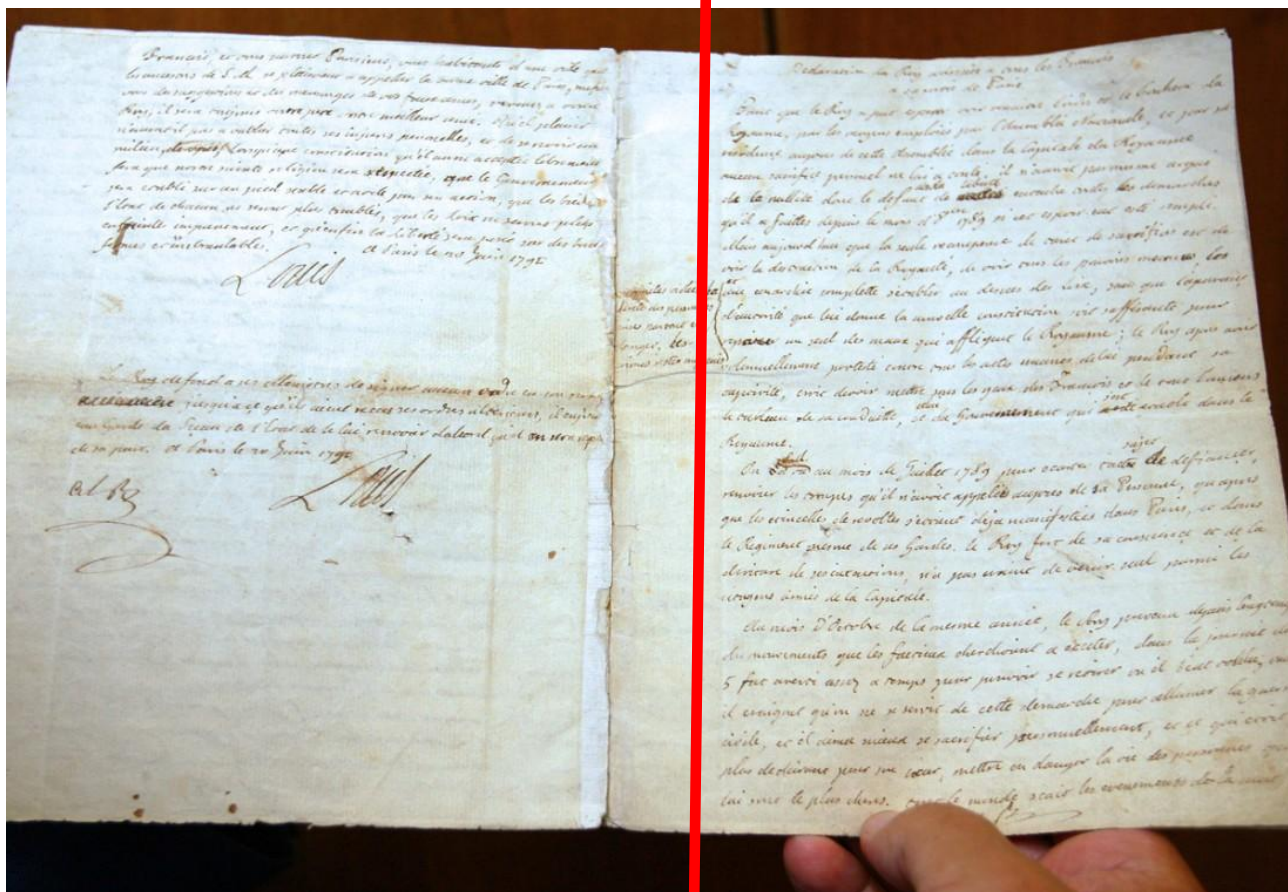 Francois, et vous surtout Parisiens, vous habitants d'une ville que
les ancestres de S.M. se plaisoient a appeller la bonne ville de Paris, mefiez
vous des suggestions et des mensonges de vos faux amis, revenez a votre
Roy, il sera toujours votre pere, votre meilleur ami. quel plaisir
n'aura t'il pas a oublier toutes ses injures personnelles, et de se revoir au
milieu de vous, lorsqu'une constitution qu'il aura acceptée librement
fera que notre sainte religion sera respectée, que le Gouvernement
sera etabli sur un pied stable et utile par son action, que les biens
l'etat de chacun ne seront plus troublés, que les loix ne seront plus
enfreinte impunement, et qu'enfin la liberté sera posée sur des bases
fermes et inebranlables. A Paris le 20 Juin 1791
Louis
Le Roy defend a ses Ministres de signer aucun ordre en son nom
jusqu'a ce qu'ils aient recus ses ordres ulterieurs, il enjoint
au Garde du Sceau de l'Etat de le lui renvoier d'abord qu'il en sera requis
de sa part. A Paris le 20 Juin 1791
Louis
Declaration du Roy adressée a tous les Francois
a sa sortie de Paris
Tant que le Roy a pu esperer voir renaitre l'ordre et le bonheur du
Royaume, par les moyens employés par l'Assemblée Nationale, et par sa
residence aupres de cette Assemblée dans la Capitale du Royaume
aucun sacrifice personnel ne lui a couté, il n'auroit pas mesme argué
de la nullité dont le defaut de liberté entache toutes les demarches
qu'il a faittes depuis le mois d'8bre 1789 si cet espoir eut été rempli.
Mais aujourd'hui que la seule recompense de tant de sacrifices est de
voir la destruction de la Royauté, de voir tous les pouvoirs meconnus les
une anarchie complette s'etablir au dessus des loix, sans que l'apparence
d'autorité que lui donne la nouvelle constitution soit suffisante pour
reparer un seul des maux qui affligent le Royaume; le Roy apres avoir
solennellement protesté contre tous les actes emanés de lui pendant sa
captivité, croit devoir mettre sous les yeux des Francois et de tout l'univers
le tableau de sa conduitte, et celui du Gouvernement qui s'est etabli dans le
Royaume.
On l'a vu au mois de Juillet 1789 pour ecarter tout sujet de defiance,
renvoier les troupes qu'il n'avoit appellé aupres de sa Personne, qu'apres
que les etincelles de revoltes s'etoient deja manifestées dans Paris, et dans
le Regiment mesme de ses Gardes. le Roy fort de sa conscience et de la
droiture de ses intentions, n'a pas craint de venir seul parmi les
citoyens armés de la Capitale.
Au mois d'Octobre de la mesme année, le Roy prevenu depuis longtems
des mouvements que les factieux cherchoient a exciter, dans la journée du
5 fut averti assez a temps pour pouvoir se retirer ou il eut voulu, mais
il craignit qu'on ne se servit de cette demarche pour allumer la guerre
civile, et il aima mieux se sacrifier personnellement, et ce qui etoit
plus dechirant pour son coeur, mettre en danger la vie des personnes qui
lui sont le plus cheres. tout le monde scait les evenements de la nuit